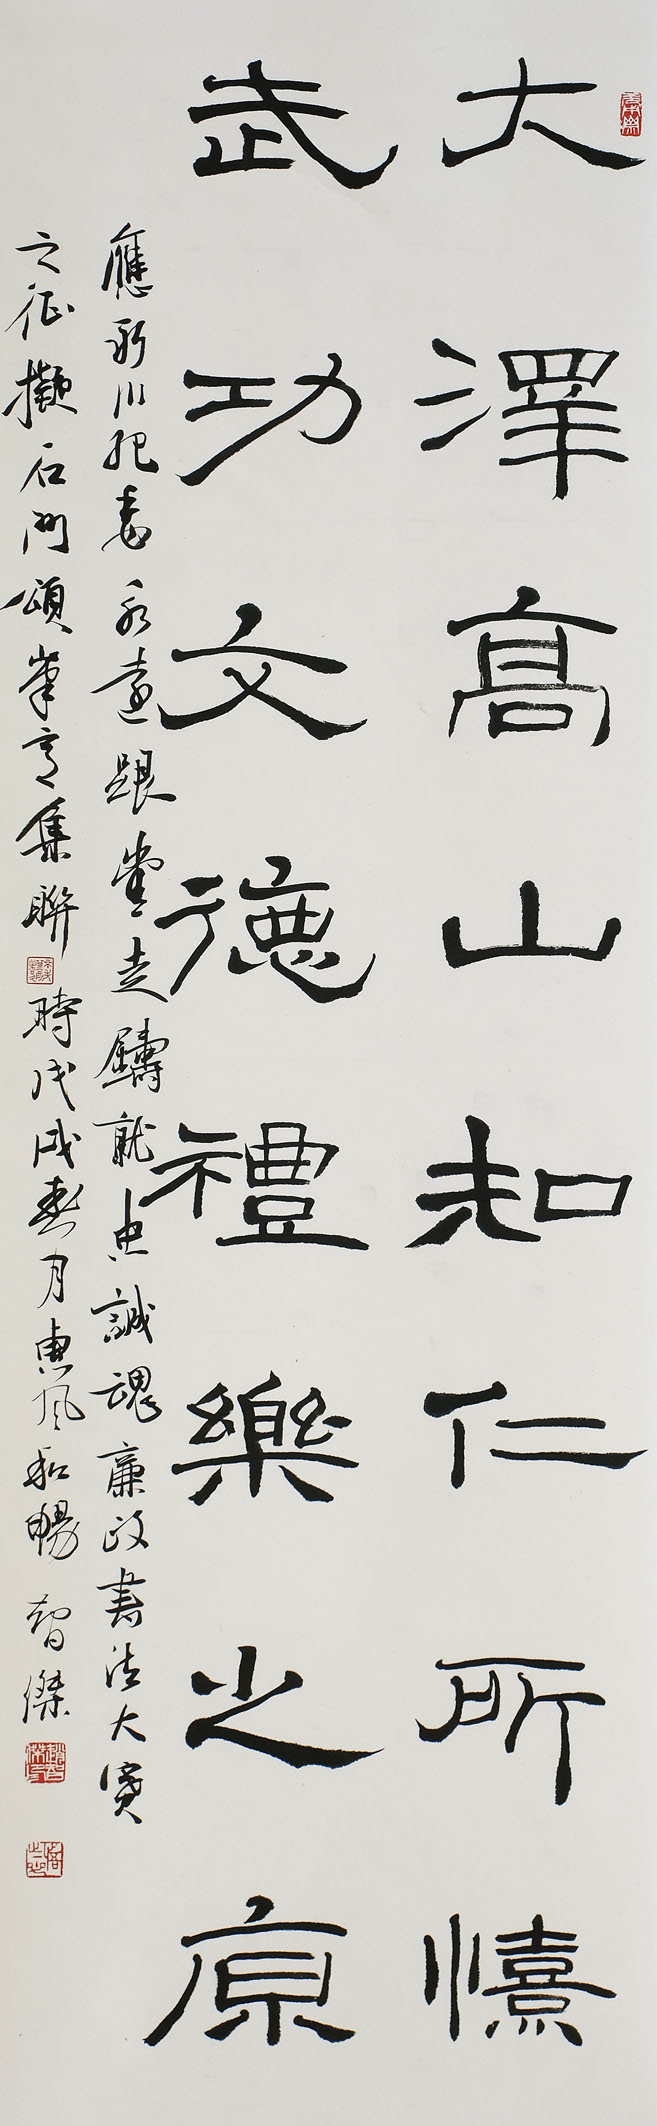 大澤高山知仁所憙
武功文德禮樂之原
應永川紀委永遠跟黨走鑄就忠誠魂廉政書法大賽
之征擬石門頌筆意集聯時戊戌春月惠風和暢智傑